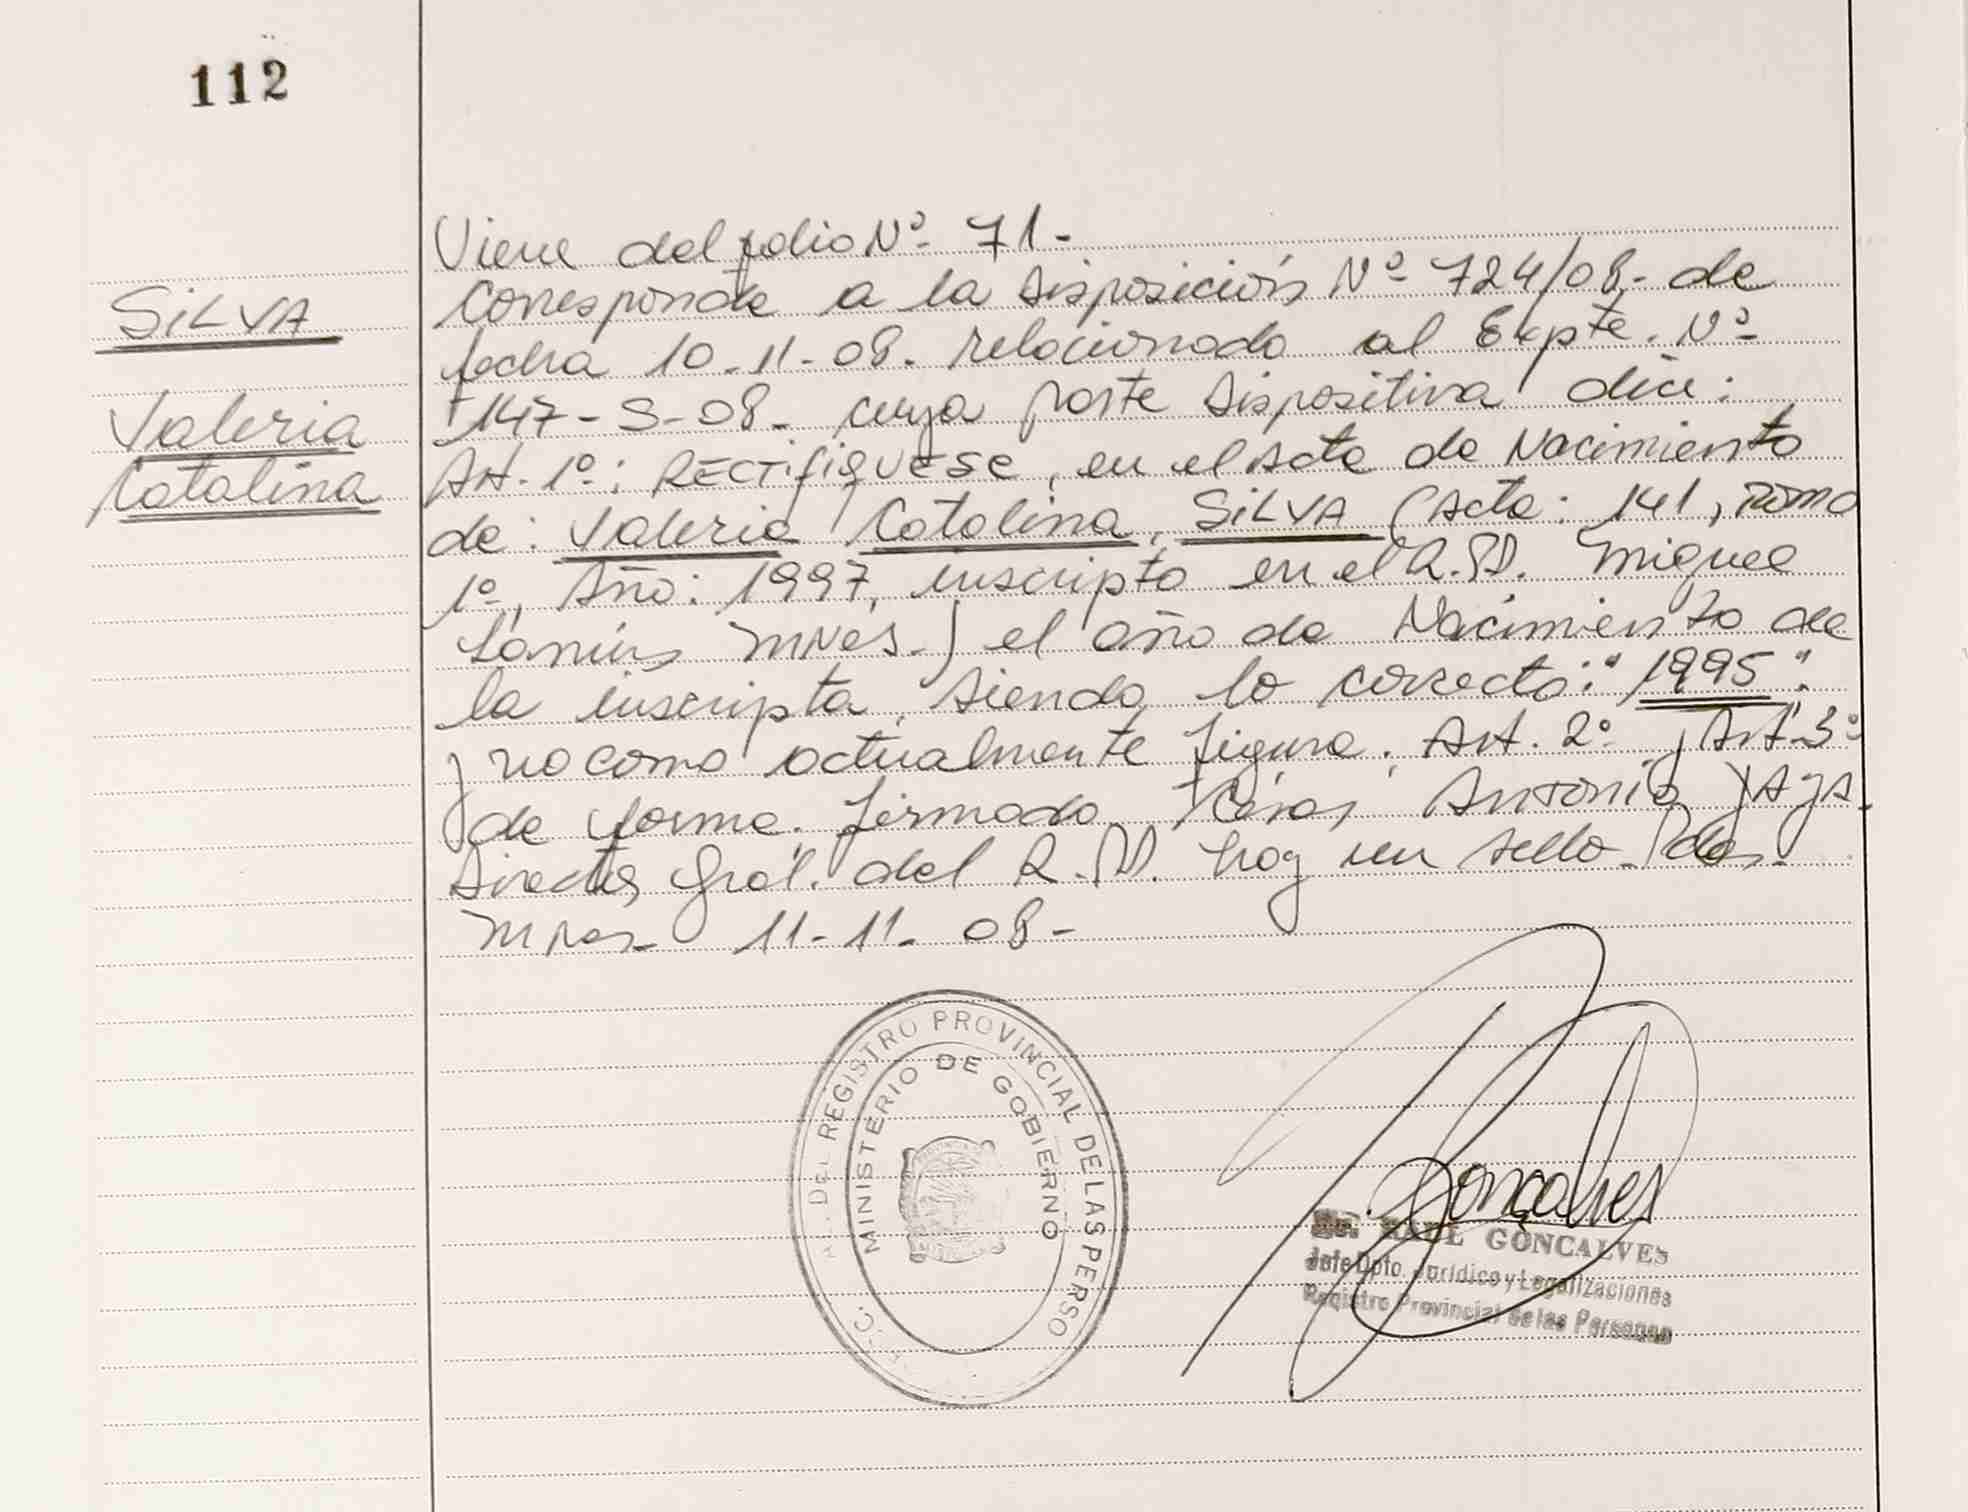 112
SiLVA
Valeria
Catalina
Viene del folio Nº 71-
Corresponde a la disposición Nº 724/08,- de
fecha 10-11-08. relacionado al Expte. Nº
147-S-08- cuya parte dispositiva dice:
Art. 1º: RECTifiQUESE, en el Acta de Nacimiento
de: Valeria Catalina, SiLVA (Acta: 141, Tomo
1º, Año: 1997, inscripto en el R.P. Miguel
Lanús Mnes.) el año de Nacimiento de
la inscripta, siendo lo correcto: "1995".
y no como actualmente figura. Art. 2º y Art. 3º
de forma. firmado Antonio
Director Gral. del R.P. hay un sello- Pdas-
Mnes- 11-11-08-
DEL REGISTRO PROVINCIAL DE LAS PERSO
MINISTERIO DE GOBIERNO
Goncalves
RAUL GONCALVES
Jefe Dpto. Jurídico y Legalizaciones
Registro Provincial de las Personas